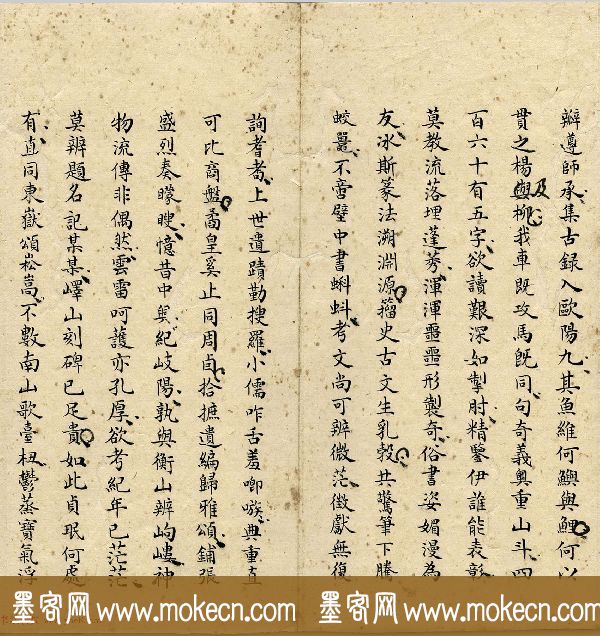 辦遵師承集古録入歐陽九其魚維何鱮與鯉何以
貫之楊與柳我車既攻馬既同句奇義奥重山斗四
及
百六十有五字欲讀艱深如掣肘精鑒伊誰能表彰
莫教流落埋蓬蒡渾渾噩噩形製奇俗書姿媚漫為
友冰斯篆法溯淵源籀史古文生乳縠共驚筆下騰
蛟鼉不啻壁中書蝌蚪考文尚可辨微茫徵獻無復
詢耆耇上世遺蹟勤搜羅小儒咋舌羞啣喉典重直
可比商盤矞皇奚止同周卣拾摭遺編歸雅頌鋪張
盛烈奏矇瞍憶昔中興紀岐陽孰與衡山辨岣嶁神
物流傳非偶然雲雷呵護亦孔厚欲考紀年已茫茫
莫辨題名記某某嶧山刻碑已足貴如此貞珉何處
有直同東嶽頌崧嵩不數南山歌臺杻鬱蒸寶氣浮
墨客网 www.mokecn.com 墨客网 www.mokecn.com